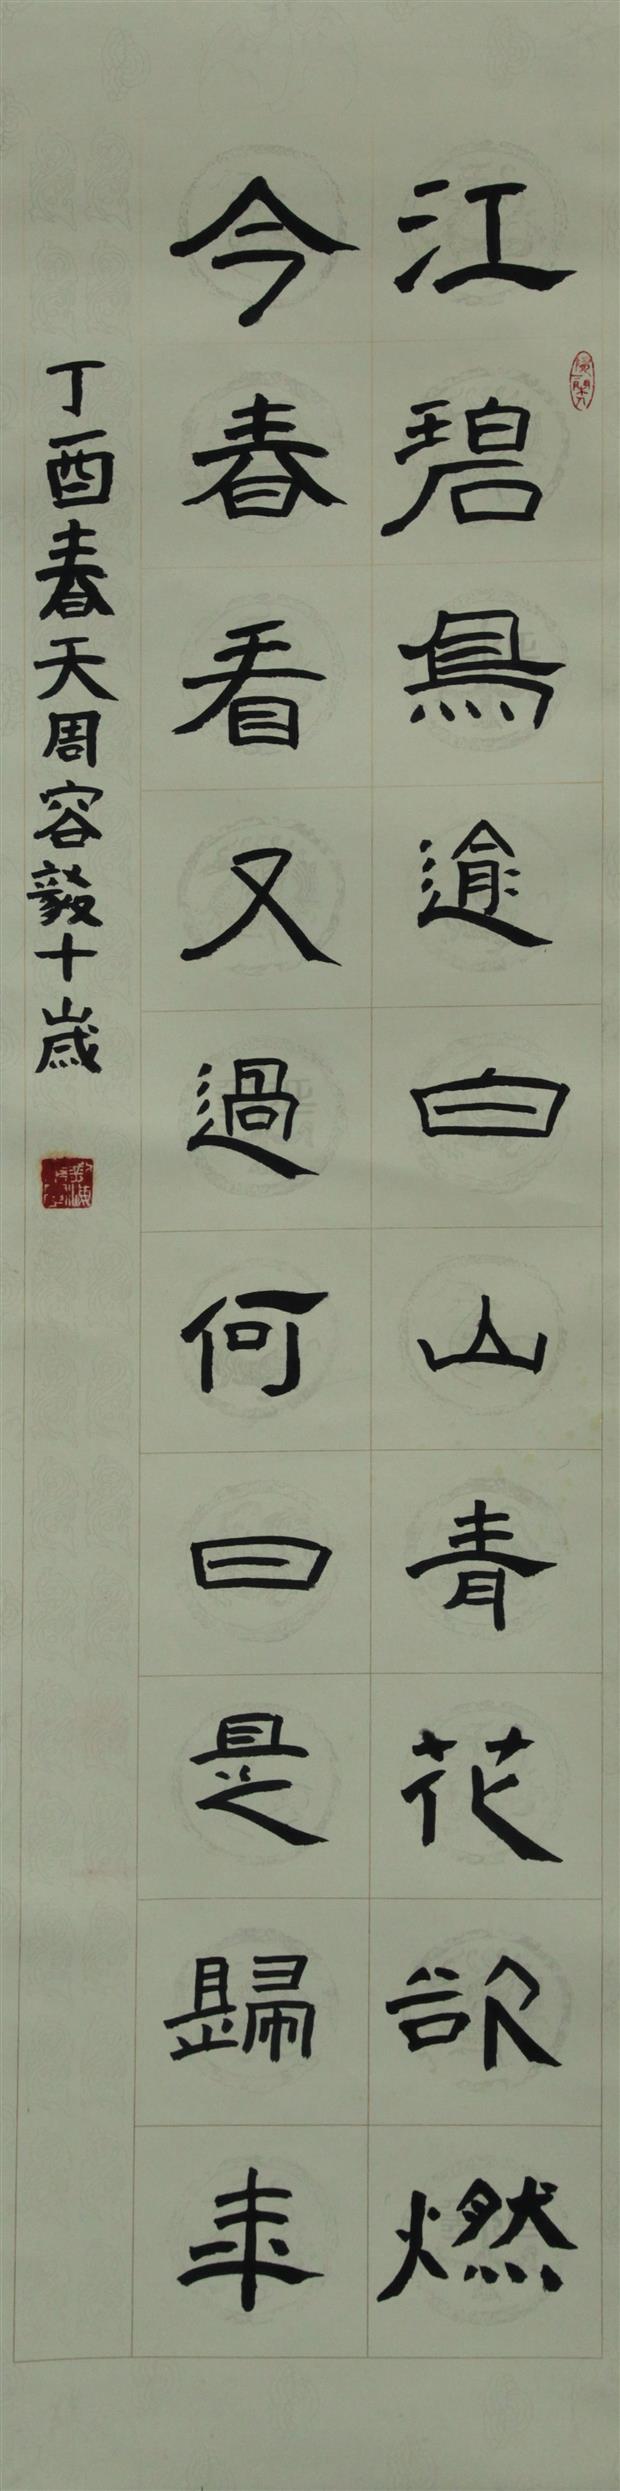 江碧鳥逾白山青花欲燃
今春看又過何日是歸年
丁酉春天周容毅十歲